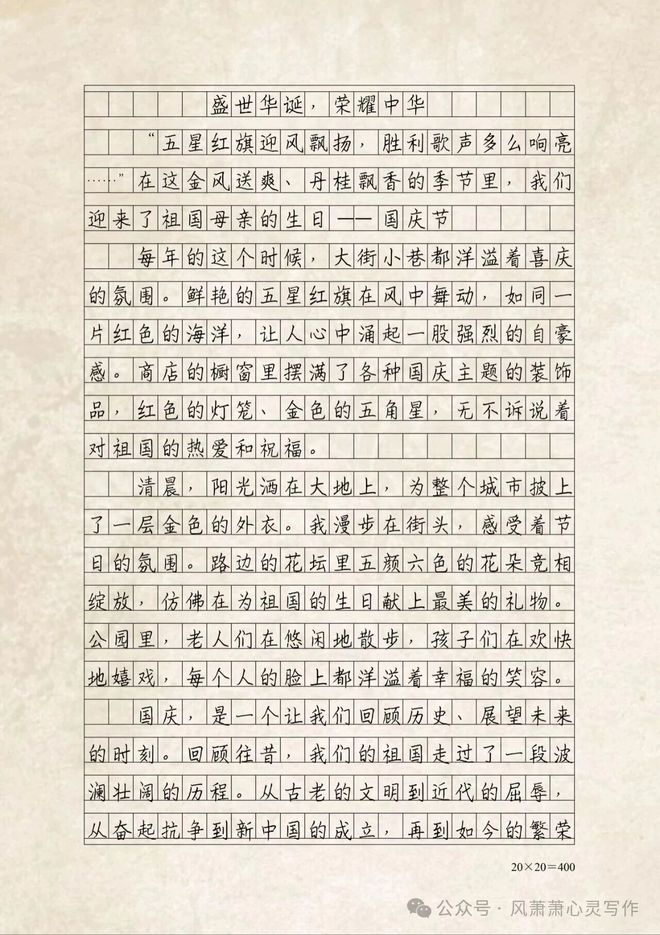 盛世华诞，荣耀中华
“五星红旗迎风飘扬，胜利歌声多么响亮
……”在这金风送爽、丹桂飘香的季节里，我们
迎来了祖国母亲的生日——国庆节
每年的这个时候，大街小巷都洋溢着喜庆
的氛围。鲜艳的五星红旗在风中舞动，如同一
片红色的海洋，让人心中涌起一股强烈的自豪
感。商店的橱窗里摆满了各种国庆主题的装饰
品，红色的灯笼、金色的五角星，无不诉说着
对祖国的热爱和祝福。
清晨，阳光洒在大地上，为整个城市披上
了一层金色的外衣。我漫步在街头，感受着节
日的氛围。路边的花坛里五颜六色的花朵竞相
绽放，仿佛在为祖国的生日献上最美的礼物。
公园里，老人们在悠闲地散步，孩子们在欢快
地嬉戏，每个人的脸上都洋溢着幸福的笑容。
国庆，是一个让我们回顾历史、展望未来
的时刻。回顾往昔，我们的祖国走过了一段波
澜壮阔的历程。从古老的文明到近代的屈辱，
从奋起抗争到新中国的成立，再到如今的繁荣
20×20=400
公众号·风萧萧心灵写作